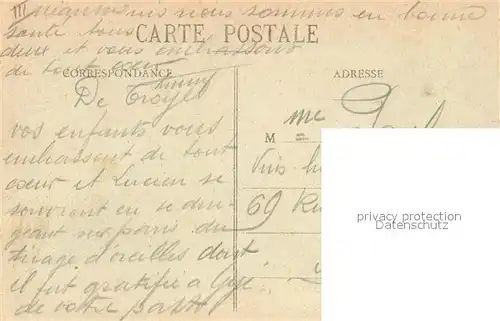 nous sommes en bonne
santé tous
CARTE POSTALE
deux et vous embrassons
de tout cœur
CORRESPONDANCE
ADRESSE
De Troyes
Me
M
vos enfants vous
embrassent de tout
cœur et Lucien se
69 Ru
souvient en se
geant sur paris du
tirage d'oreilles dont
il fut gratifié a
de votre part
privacy protection
Datenschutz